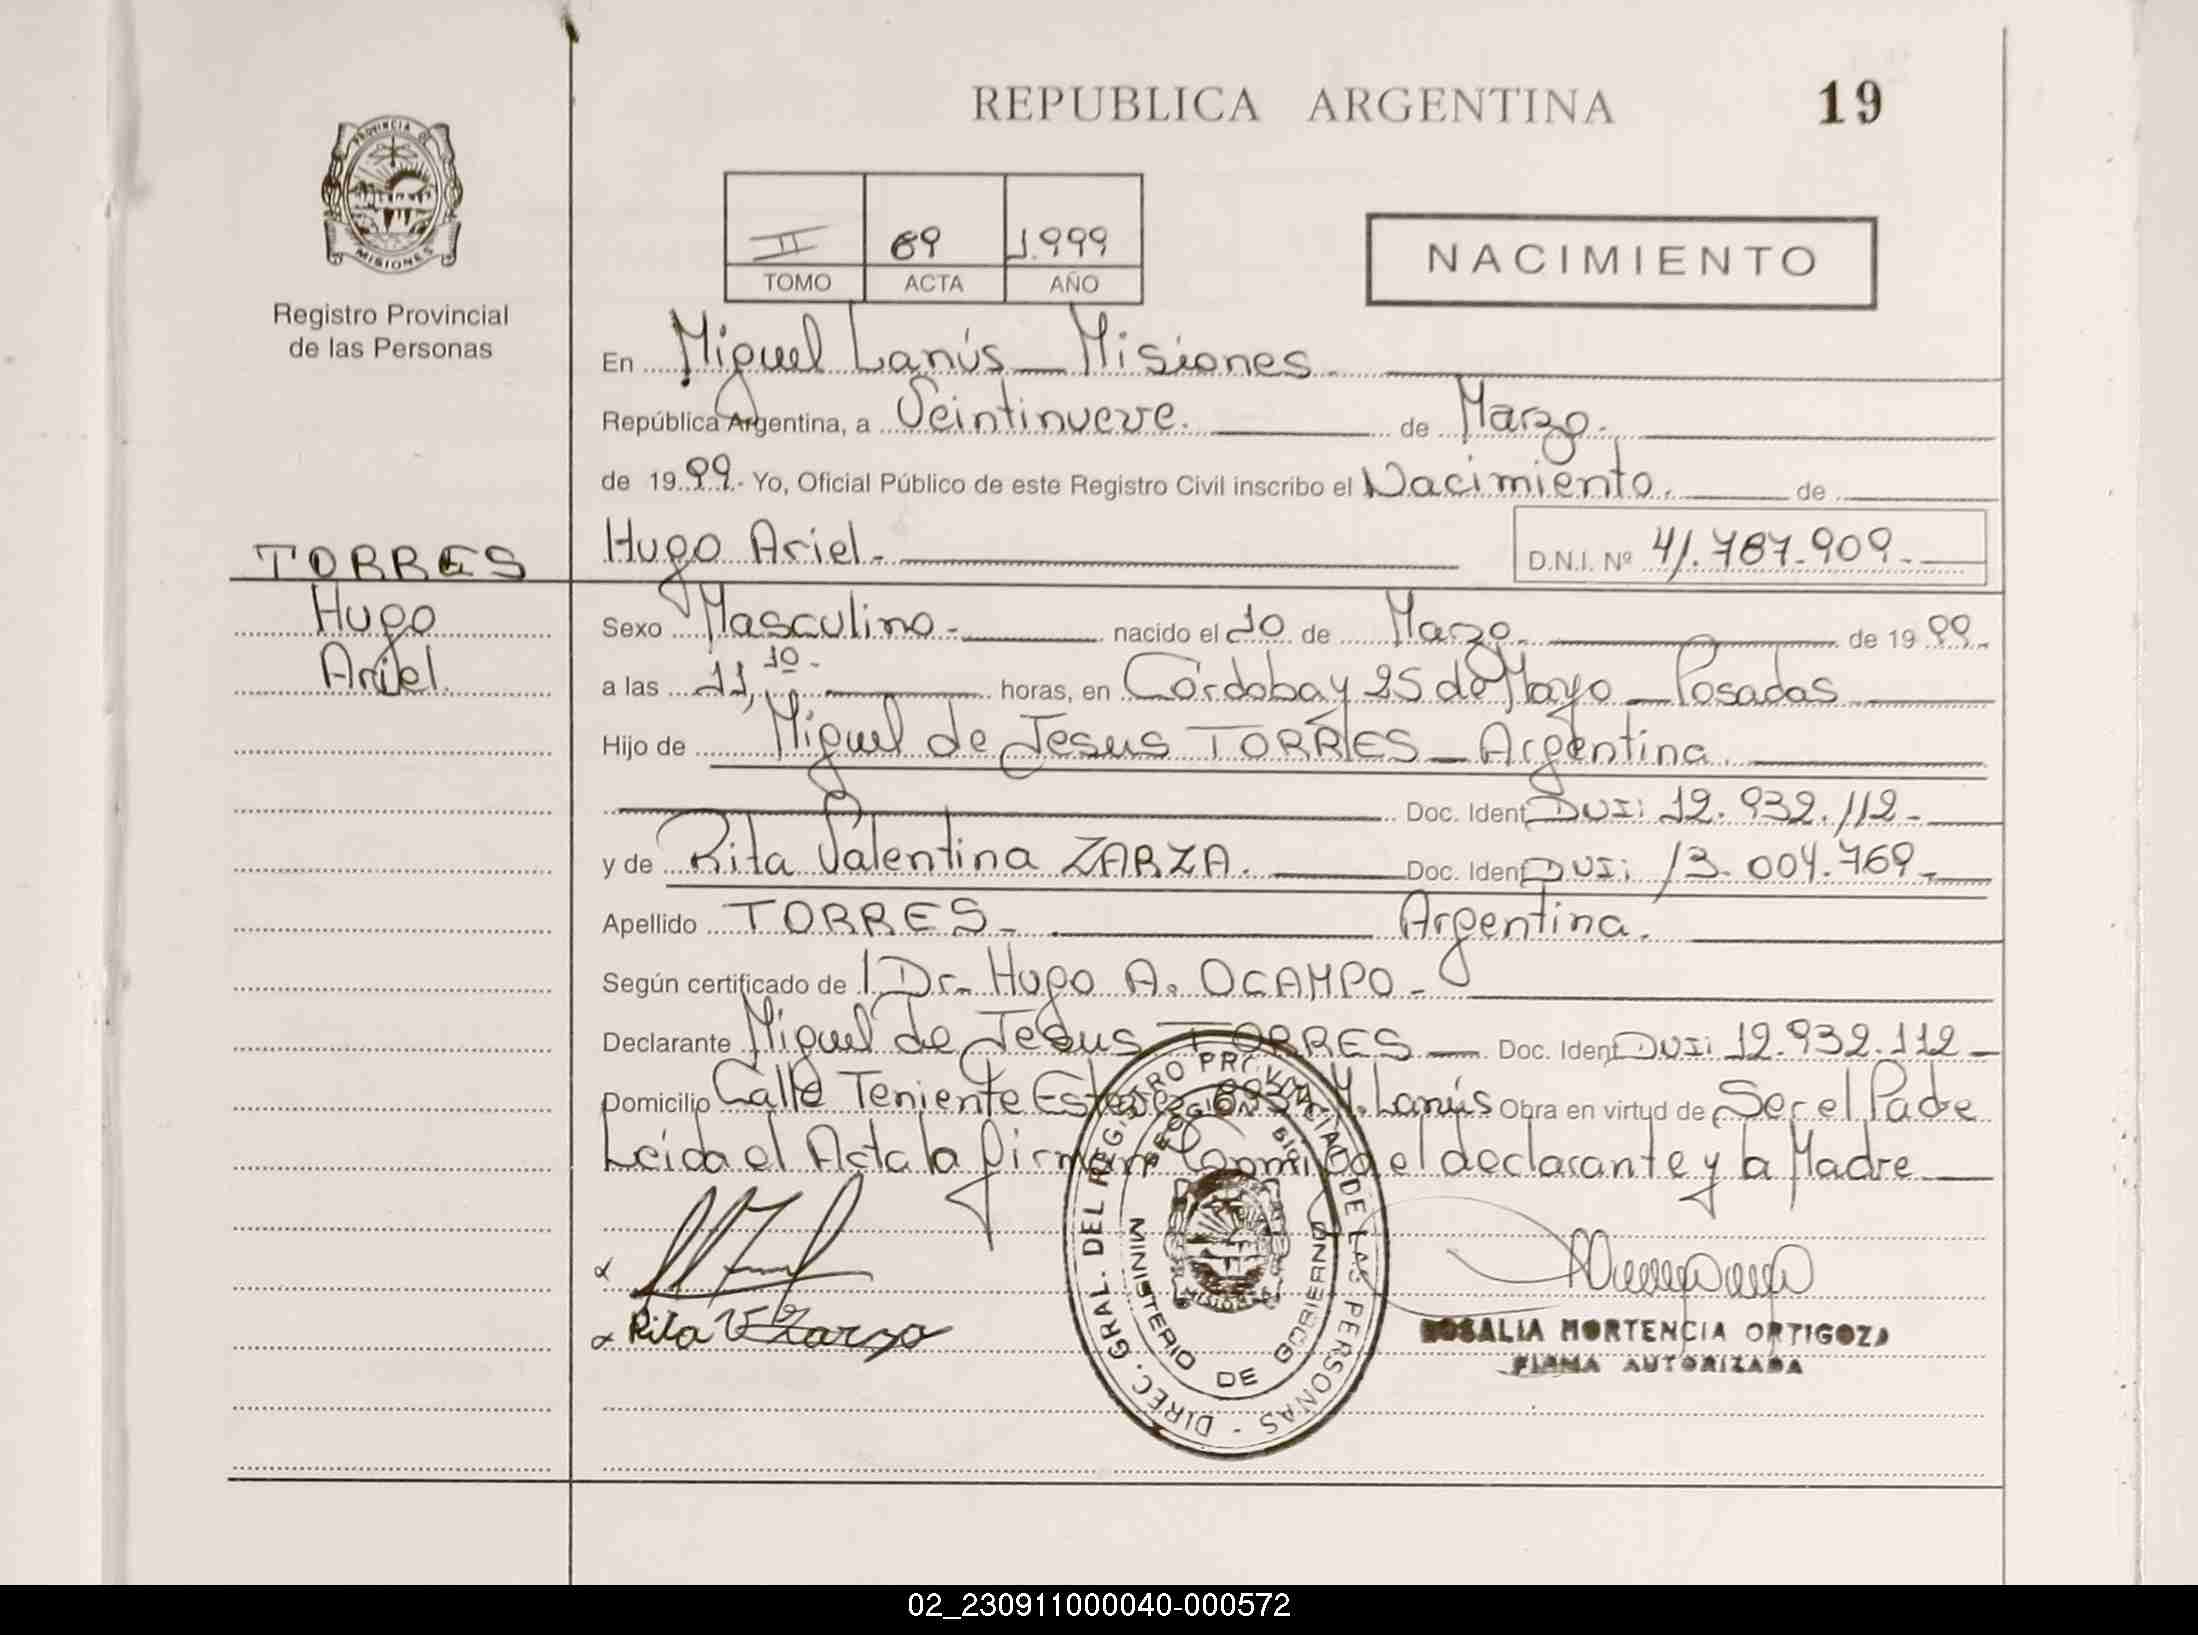 REPUBLICA ARGENTINA
19
PROVINCIA DE
MISIONES
Registro Provincial
de las Personas
II 69 1.999
TOMO ACTA AÑO
NACIMIENTO
En Miguel Lanús — Misiones.
República Argentina, a Veintinueve. de Marzo.
de 1999.- Yo, Oficial Público de este Registro Civil inscribo el Nacimiento. de
TORRES
Hugo
Ariel.
Hugo Ariel.-
D.N.I. Nº 41.787.909.-
Sexo Masculino.- nacido el 10 de Marzo. de 1999.-
a las 11,10.- horas, en Córdoba y 25 de Mayo — Posadas
Hijo de Miguel de Jesus TORRES — Argentina.
Doc. Ident. DNI: 12.932.112.-
y de Rita Valentina ZARZA. Doc. Ident. DNI: 13.004.769.-
Apellido TORRES.- Argentina.
Según certificado de l Dr. Hugo A. OCAMPO.-
Declarante Miguel de Jesus TORRES — Doc. Ident. DNI: 12.932.112 —
Domicilio Calle Teniente M. Lanús Obra en virtud de Ser el Padre
Leida el Acta la firman Conmigo el declarante y la Madre
Rita V Zarza
DIREC. GRAL. DEL REGISTRO PROVINCIAL DE LAS PERSONAS -
MINISTERIO DE GOBIERNO
MISIONES
ROSALIA HORTENCIA ORTIGOZA
FIRMA AUTORIZADA
02_230911000040-000572